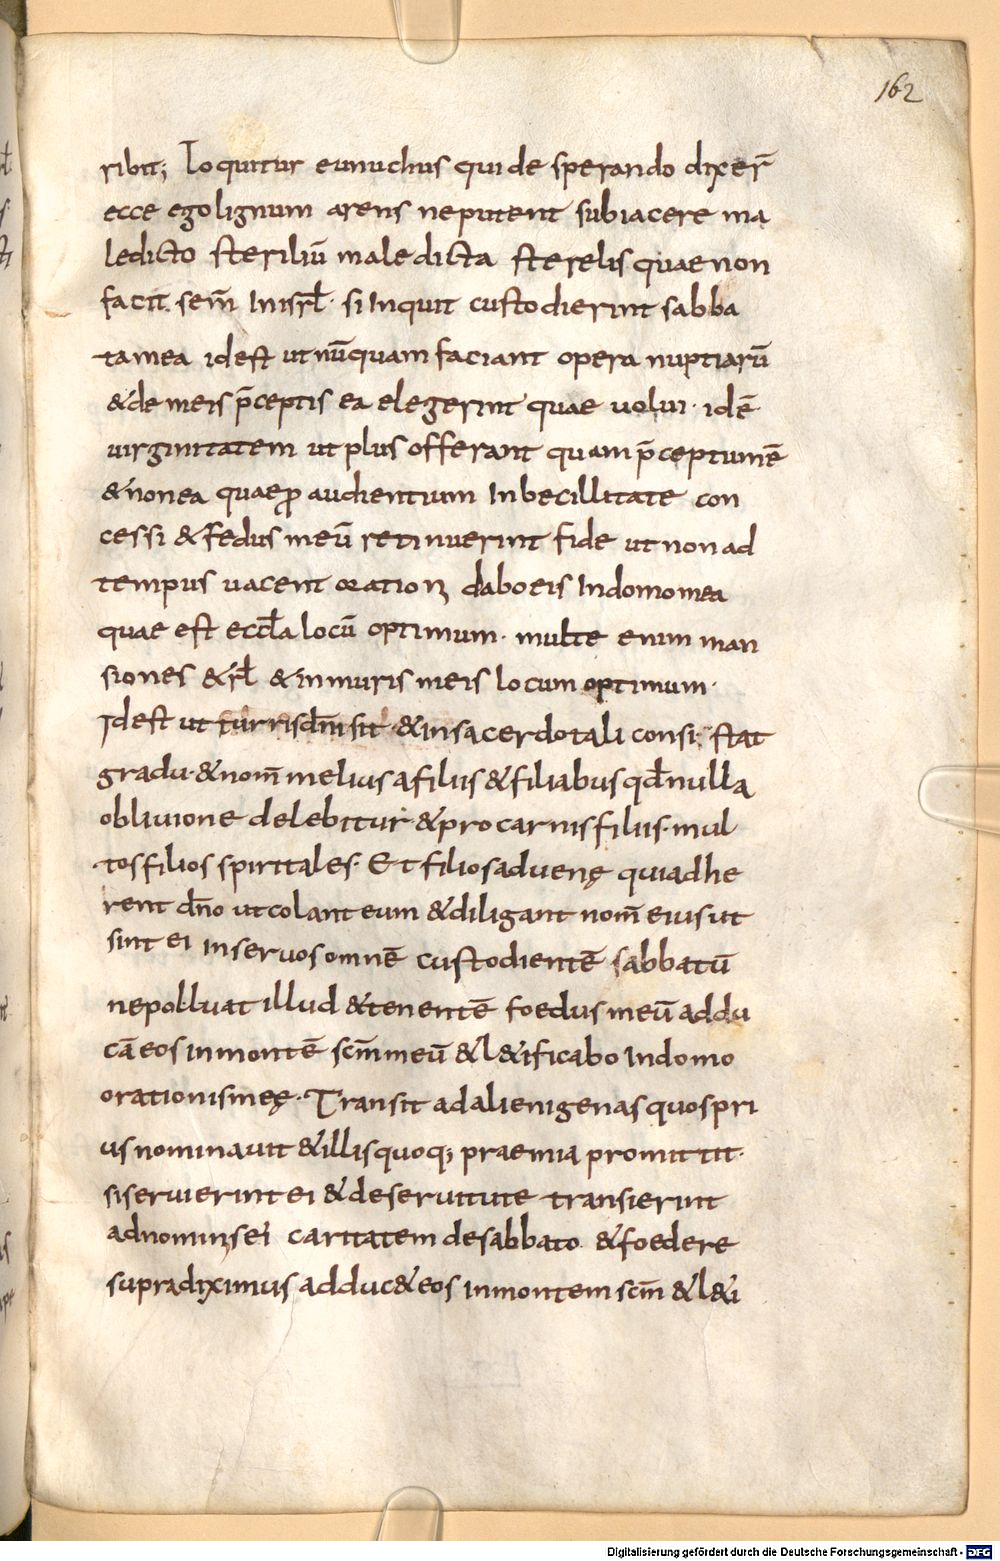 162
ribit; Loquitur eunuchus qui de sperando dixer̄
ecce ego lignum arens ne putent subiacere ma
ledicto steriliū maledicta sterelis quae non
facit sem̄ In isrƚ · si Inquit custodierint sabba
ta mea id est ut nūquam faciant opera nuptiarū
& de meis p̄ceptis ea elegerint quae uolui · idē
uirginitatem ut plus offerant quam p̄ceptum ē
& non ea quae ꝓ audientium Inbecillitate con
cessi & fedus meū retinuerint fide ut non ad
tempus uacent orationꝫ dabo eis In domo mea
quae est eccƚa locū optimum · multe enim man
siones & rƚ & in muris meis locum optimum ·
Id est ut turris dn̄i sit · & in sacerdotali consi; stat
gradu · & nom̄ melius a filiis & filiabus qđ nulla
obliuione delebitur · & pro carnis filiis · mul
tos filios spiritales · Et filios aduenę qui adhe
rent dn̄o ut colant eum & diligant nom̄ eius ut
sint ei In seruos omnē custodientē sabbatū
ne polluat illud & tenentē foedus meū addu
cā eos in montē scm̄ meū & l&ificabo In domo
orationis meę · Transit ad alienigenas quos pri
us nominauit & illis quoq; praemia promittit ·
si seruierint ei & de seruitute transierint
ad nominꝫ ei caritatem de sabbato & foedere
supra diximus adduc& eos in montem scm̄ & l&i
Digitalisierung gefördert durch die Deutsche Forschungsgemeinschaft - DFG